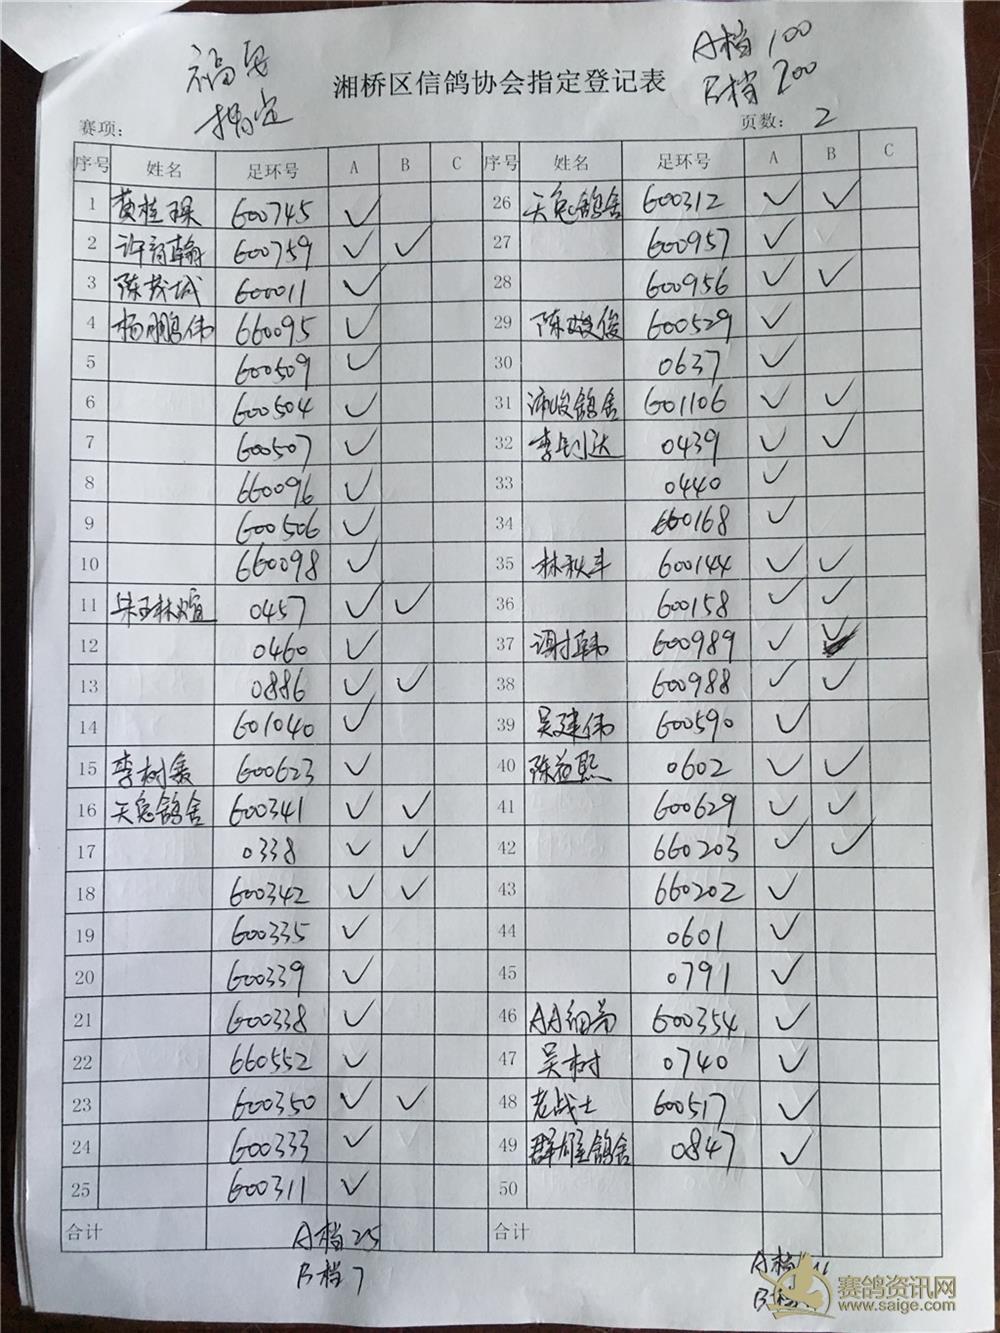 A档 100
福
B档 200
指定
湘桥区信鸽协会指定登记表
赛项：
页数： 2
序号 姓名 足环号 A B C 序号 姓名 足环号 A B C
1 黄桂 600745 ✓ 26 天兔鸽舍 600312 ✓ ✓
2 许育翰 600759 ✓ ✓ 27 600957 ✓
3 陈茂城 600011 ✓ 28 600956 ✓ ✓
4 杨鹏伟 660095 ✓ 29 陈俊 600529 ✓
5 600509 ✓ 30 0637 ✓
6 600504 ✓ 31 沛峻鸽舍 601106 ✓ ✓
7 600507 ✓ 32 李钊达 0439 ✓ ✓
8 660096 ✓ 33 0440 ✓
9 600506 ✓ 34 660168 ✓
10 660098 ✓ 35 林秋丰 600144 ✓ ✓
11 0457 ✓ ✓ 36 600158 ✓ ✓
12 0460 ✓ 37 谢韩 600989 ✓ ✓
13 0886 ✓ ✓ 38 600988 ✓ ✓
14 601040 ✓ 39 吴建伟 600590 ✓
15 李树 600623 ✓ 40 陈熙 0602 ✓ ✓
16 天兔鸽舍 600341 ✓ ✓ 41 600629 ✓ ✓
17 0338 ✓ ✓ 42 660203 ✓ ✓
18 600342 ✓ ✓ 43 660202 ✓
19 600335 ✓ 44 0601 ✓
20 600339 ✓ 45 0791 ✓
21 600338 ✓ 46 AA细弟 600354 ✓
22 660552 ✓ 47 吴树 0740 ✓
23 600350 ✓ ✓ 48 老战士 600517 ✓
24 600333 ✓ 49 群雄鸽舍 0847 ✓
25 600311 ✓ 50
合计 合计
A档 25
B档 7
A档
B档
赛鸽资讯网
www.saige.com